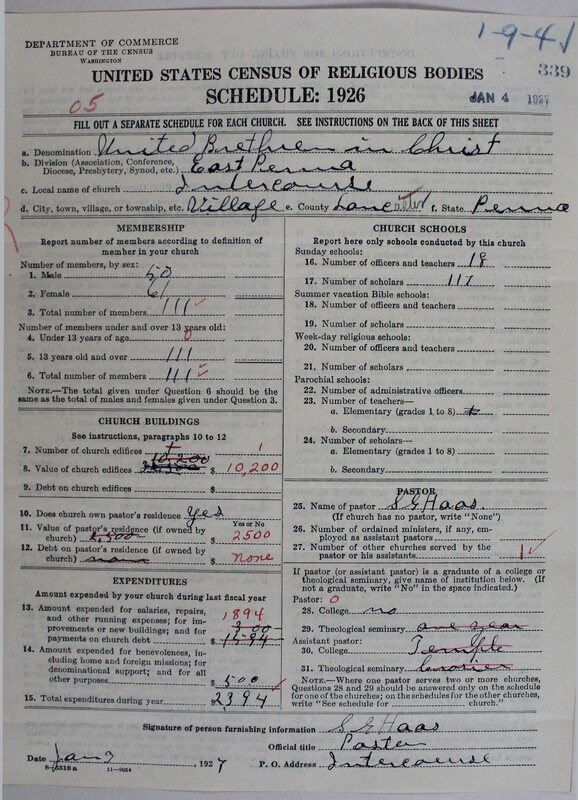 1-9-41
DEPARTMENT OF COMMERCE
BUREAU OF THE CENSUS
WASHINGTON
339
UNITED STATES CENSUS OF RELIGIOUS BODIES
SCHEDULE: 1926
05
JAN 4 1927
FILL OUT A SEPARATE SCHEDULE FOR EACH CHURCH. SEE INSTRUCTIONS ON THE BACK OF THIS SHEET
a. Denomination United Brethren in Christ
b. Division (Association, Conference, Diocese, Presbytery, Synod, etc.) East Penna
c. Local name of church Intercourse
d. City, town, village, or township, etc. Village e. County Lancaster f. State Penna
MEMBERSHIP
Report number of members according to definition of
member in your church
Number of members, by sex:
1. Male 50
2. Female 61
3. Total number of members 111
Number of members under and over 13 years old:
4. Under 13 years of age 0
5. 13 years old and over 111
6. Total number of members 111
NOTE.—The total given under Question 6 should be
the same as the total of males and females given under Question 3.
CHURCH BUILDINGS
See instructions, paragraphs 10 to 12
7. Number of church edifices 1
8. Value of church edifices 10,200 $ 10,200
9. Debt on church edifices $
10. Does church own pastor's residence yes
Yes or No
11. Value of pastor's residence (if owned by
church) 2,500 $ 2500
12. Debt on pastor's residence (if owned by
church) none $ none
EXPENDITURES
Amount expended by your church during last fiscal year
13. Amount expended for salaries, repairs,
and other running expenses; for im-
provements or new buildings; and for
payments on church debt $ 1894
14. Amount expended for benevolences,
including home and foreign missions; for
denominational support; and for all
other purposes $ 500
15. Total expenditures during year $ 2394
CHURCH SCHOOLS
Report here only schools conducted by this church
Sunday schools:
16. Number of officers and teachers 18
17. Number of scholars 117
Summer vacation Bible schools:
18. Number of officers and teachers
19. Number of scholars
Week-day religious schools:
20. Number of officers and teachers
21. Number of scholars
Parochial schools:
22. Number of administrative officers
23. Number of teachers—
a. Elementary (grades 1 to 8)
b. Secondary
24. Number of scholars—
a. Elementary (grades 1 to 8)
b. Secondary
PASTOR
25. Name of pastor S G Haas
(If church has no pastor, write "None")
26. Number of ordained ministers, if any, em-
ployed as assistant pastors
27. Number of other churches served by the
pastor or his assistants 1
If pastor (or assistant pastor) is a graduate of a college or
theological seminary, give name of institution below. (If
not a graduate, write "No" in the space indicated.)
Pastor: 0
28. College no
29. Theological seminary one year
Assistant pastor:
30. College Temple
31. Theological seminary Crozier
NOTE.—Where one pastor serves two or more churches,
Questions 28 and 29 should be answered only on the schedule
for one of the churches; on the schedules for the other churches,
write "See schedule for ______ church."
Signature of person furnishing information S G Haas
Official title Pastor
Date Jan 3 1927 P. O. Address Intercourse
8-5518a 11-9054